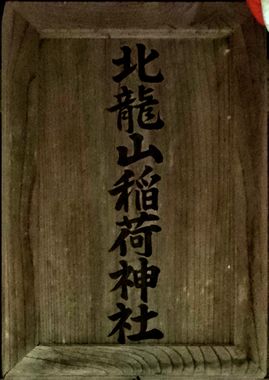 北龍山稲荷神社